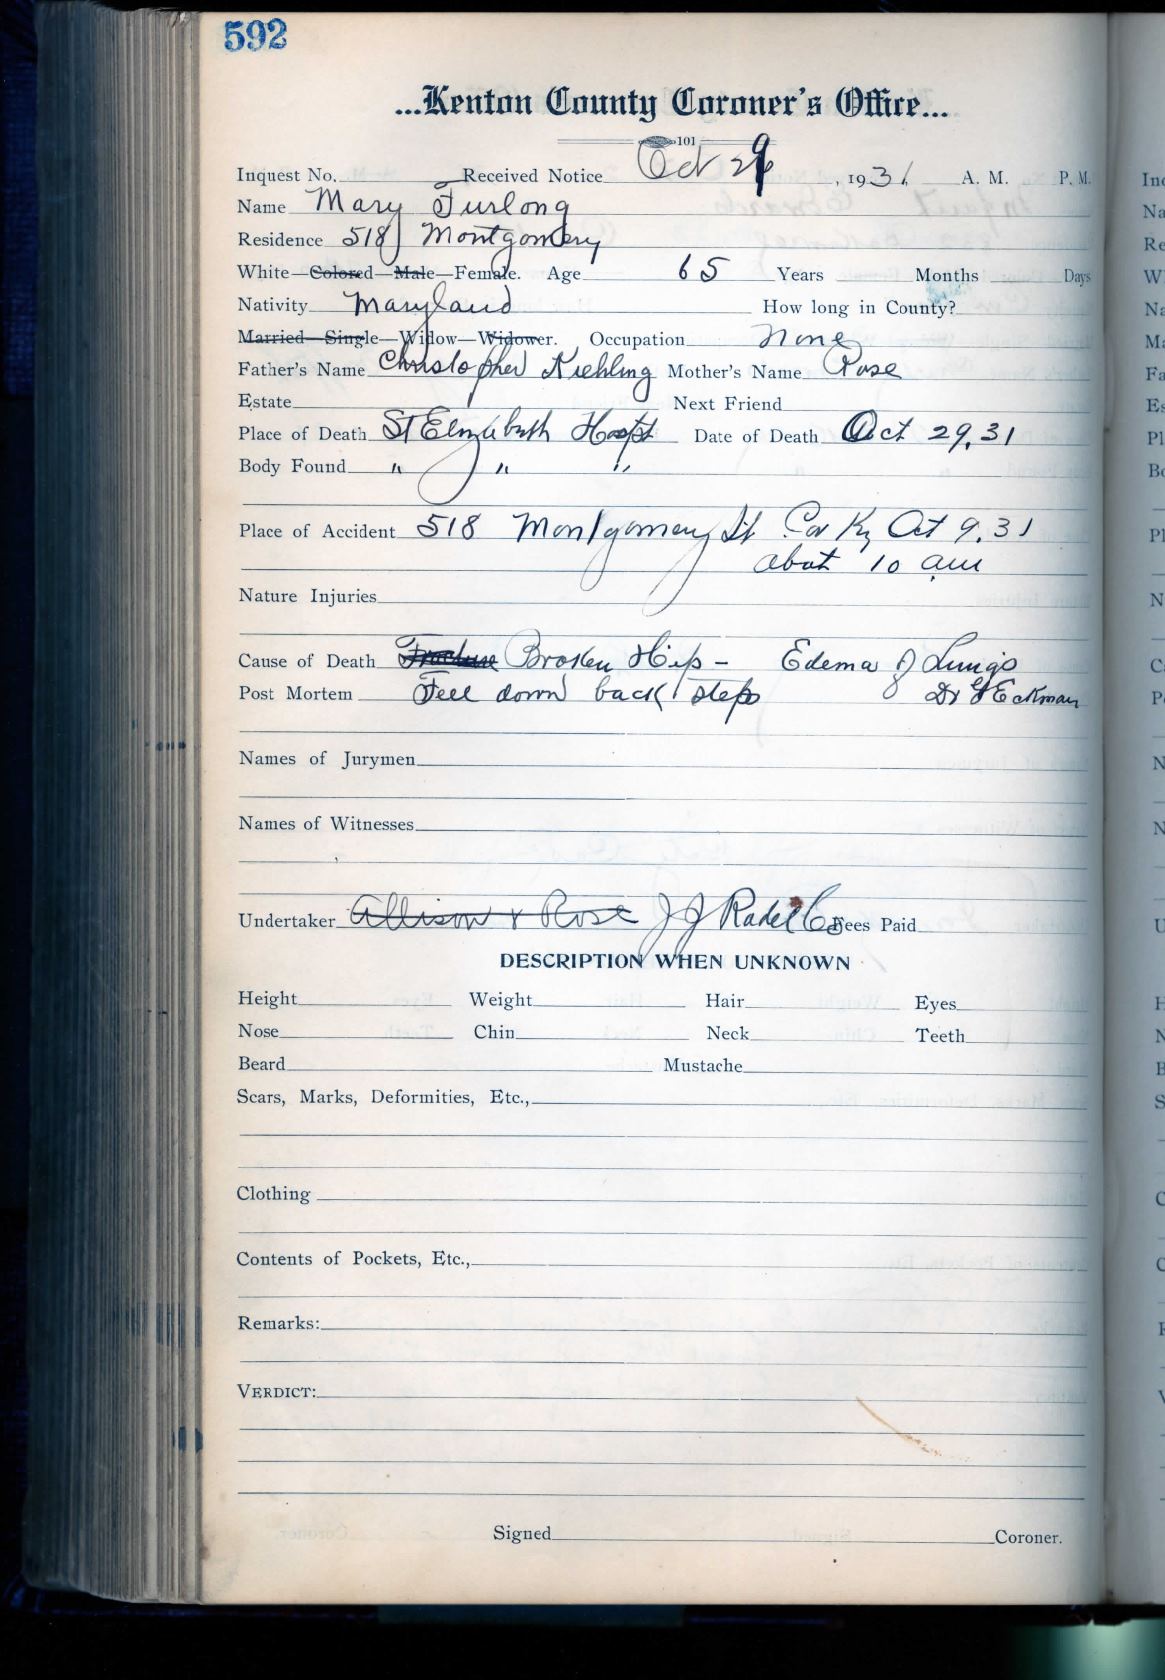 592
...Kenton County Coroner's Office...
101
Inquest No. Received Notice Oct 29, 1931, A. M. P. M.
Name Mary Furlong
Residence 518 Montgomery
White—Colored—Male—Female. Age 65 Years Months Days
Nativity Maryland How long in County?
Married—Single—Widow—Widower. Occupation None
Father's Name Christopher Kiehling Mother's Name Rose
Estate Next Friend
Place of Death St Elizabeth Hospt Date of Death Oct 29, 31
Body Found " " "
Place of Accident 518 Montgomery St Cov Ky Oct 9, 31
about 10 am
Nature Injuries
Cause of Death Fracture Broken Hip - Edema of Lungs
Post Mortem Fell down back steps Dr Eckman
Names of Jurymen
Names of Witnesses
Undertaker Allison & Rose J J Radel Co Fees Paid
DESCRIPTION WHEN UNKNOWN
Height Weight Hair Eyes
Nose Chin Neck Teeth
Beard Mustache
Scars, Marks, Deformities, Etc.,
Clothing
Contents of Pockets, Etc.,
Remarks:
VERDICT:
Signed Coroner.